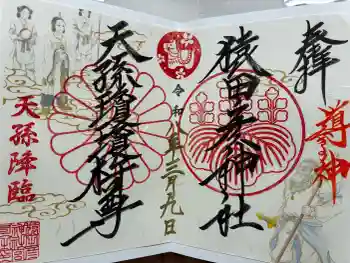 奉拝
導神
猿田彦神社
令和八年十二月九日
天孫瓊瓊杵尊
天孫降臨